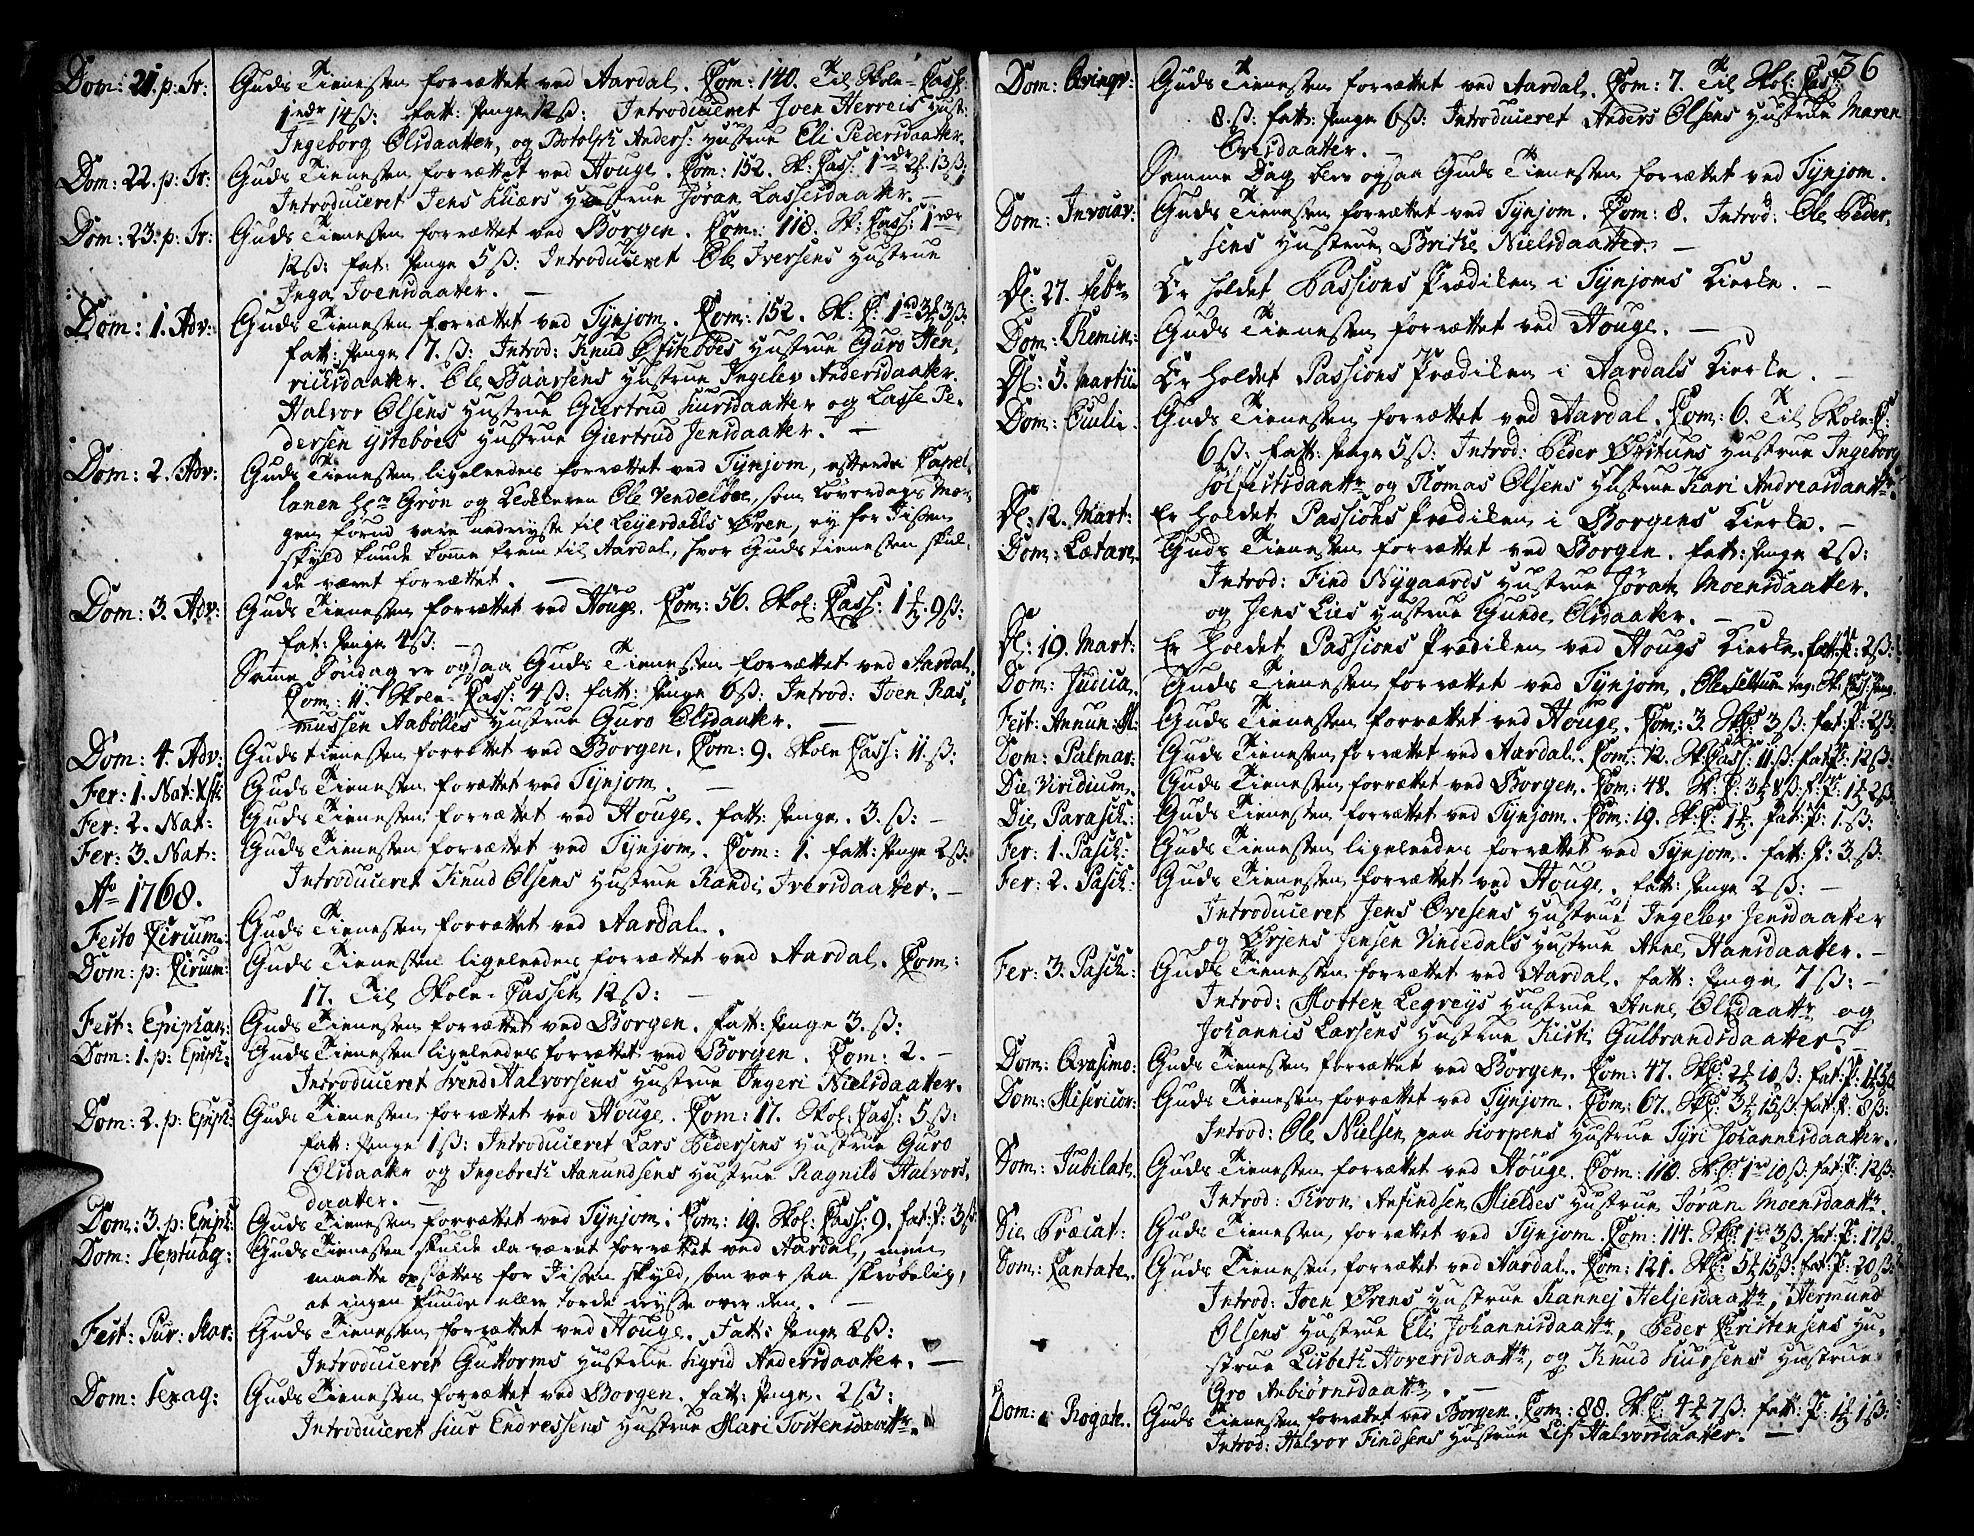 Dom: 21. p: Tr: Guds Tienesten forrættet ved Aardal. Com: 140. Til Skole-Cass:
1 rdr 14 ß: fatt: Penge 12 ß: Introduceret Joen Herreis Hust:
Ingeborg Olsdaatter, og Botolph Anders: Hustrue Eli Pedersdaatter.
Dom: 22. p: Tr: Guds Tienesten forrættet ved Houge. Com: 152. Sk: Cass: 1 rdr 2 13 ß:
Introduceret Jens Kuærs Hustrue Jøran Lassesdaatter. –
Dom: 23. p: Tr: Guds Tienesten forrættet ved Borgen. Com: 118. Sk: Cass: 1 rdr
12 ß: fat: Penge 5 ß: Introduceret Ole Iversens Hustrue
Inga Joensdaatter. –
Dom: 1. Adv: Guds Tienesten forrættet ved Tynjom. Com: 152. Sk: C: 1 rd 3 3 ß:
fatt: Penge 17. ß: Introd: Knud Ystebøes Hustrue Guro Hen-
richsdaatter. Ole Baarsens Hustrue Ingelev Andersdaatter.
Halvor Olsens Hustrue Giertrud Siursdaatter og Lasse Pe-
dersen Ystebøes Hustrue Giertrud Jensdaatter. –
Dom: 2. Adv: Guds Tienesten ligeleedes forrættet ved Tynjom, efterdi Capel-
lanen Hr Grøn og Klokkeren Ole Vendelboe, som Løverdags Mor-
gen forud vare nedreyste til Leyerdahls Øren, ey for Iissen
skyld kunde komme frem til Aardal, hvor Guds Tienesten skul-
de været forrættet. –
Dom: 3. Adv: Guds Tienesten forrættet ved Houge. Com: 56. Skol: Cass: 1 9 ß:
fat: Penge 4 ß: –
Samme Søndag er ogsaa Guds Tienesten forrættet ved Aardal.
Com: 11. Skole-Cass: 4 ß: fatt: Penge 6 ß: Introd: Joen Ras-
mussen Aabølles Hustrue Guro Olsdaatter. –
Dom: 4. Adv: Guds tienesten forrættet ved Borgen. Com: 9. Skole Cass: 11. ß:
Fer: 1. Nat: Xsti: Guds Tienesten forættet ved Tynjom. –
Fer: 2. Nat: Guds Tienesten forrættet ved Houge. fatt: Penge. 3. ß: –
Fer: 3. Nat: Guds Tienesten forrættet ved Tynjom. Com: 1. fatt: Penge 2 ß:
Introduceret Knud Olsens Hustrue Randi Iversdaatter. –
Ao 1768.
Festo Circum: Guds Tienesten forrættet ved Aardal.
Dom: p: Circum: Guds Tienesten ligeleedes forrættet ved Aardal. Com:
17. Til Skole-Cassen 12 ß: –
Fest: Epiphan: Guds Tienesten forrættet ved Borgen. fatt: Penge 3. ß:
Dom: 1. p: Epiph: Guds Tienesten ligeleedes forrættet ved Borgen. Com: 2. –
Introduceret Svend Halvorsens Hustrue Ingeri Nielsdaatter.
Dom: 2. p: Epiph: Guds Tienesten forrættet ved Houge. Com: 17. Skol: Cass: 5 ß:
fatt: Penge 1 ß: Introduceret Lars Pedersens Hustrue Guro
Olsdaatter og Ingebreth Aamundsens Hustrue Ragnild Halvors-
daatter. –
Dom: 3. p: Epiph: Guds Tienesten forrættet ved Tynjom. Com: 19. Skol: Cass: 9. fat: P: 3 ß
Dom: Septuag: Guds Tienesten skulde da været forrættet ved Aardal, men
maatte opsættes for Iissen skyld, som var saa skrøbelig,
at ingen kunde eller torde reyse over den. –
Fest: Pur: Mar: Guds Tienesten forrættet ved Houge. Fatt: Penge 2 ß:
Introduceret Guttorms Hustrue Sigrid Andersdaatter. –
Dom: Sexag: Guds Tienesten forrættet ved Borgen. fatt: Penge. 2 ß:
Introduceret Siur Endressens Hustrue Mari Tostensdaattr.
36
Dom: Qvinqv: Guds Tienesten forrættet ved Aardal. Com: 7. Til Skol: Cass:
8. ß: fatt: Penge 6 ß: Introduceret Anders Olsens Hustrue Maren
Ovesdaatter. –
Samme Dag blev ogsaa Guds Tienesten forrættet ved Tynjom.
Dom: Invocav: Guds Tienesten forrættet ved Tynjom. Com: 8. Introd: Ole Peder-
sens Hustrue Brithe Nielsdaatter. –
Dl: 27. Febr: Er holdet Passions Prædiken i Tynjoms Kierke. –
Dom: Remin: Guds Tienesten forrættet ved Houge. –
Dl: 5. Martii Er holdet Passions Prædiken i Aardals Kierke. –
Dom: Oculi. Guds Tienesten forrættet ved Aardal. Com: 6. Til Skole-C:
6 ß: fatt: Penge 5 ß: Introd: Peder Ottstuns Hustrue Ingeborg
Sølfestsdaattr og Thomas Olsens Hustrue Kari Andreasdaattr.
Dl: 12. Mart: Er holdet Passions Prædiken i Borgens Kierke. –
Dom: Lætare. Guds Tienesten forrættet ved Borgen. fatt: Penge 2 ß:
Introd: Find Nygaards Hustrue Jøran Moensdaatter.
og Jens Lies Hustrue Gunde Olsdaatter. –
Dl: 19. Mart: Er holdet Passions Prædiken ved Hougs Kierke. fatt: P: 2 ß:
Dom: Judica. Guds Tienesten forrættet ved Tynjom. Ole Seltun
Fest: Annun: M: Guds Tienesten forrættet ved Houge. Com: 3. Sk: C: 3 ß: fat: P: 2 ß:
Dom: Palmar: Guds Tienesten forrættet ved Aardal. Com: 12. Sk: Cass: 11. ß: fat: P: 12 ß:
Die Viridium. Guds Tienesten forrættet ved Borgen. Com: 48. Sk: C: 3 8 ß: f: P: 1 2 ß
Die Parasch. Guds Tienesten forrættet ved Tynjom. Com: 19. Sk: C: 1 fat: P: 1. ß:
Fer: 1. Pasch: Guds Tienesten ligeleedes forrættet ved Tynjom. fatt: P: 3. ß:
Fer: 2. Pasch: Guds Tienesten forrættet ved Houge. fatt: Penge 2 ß: –
Introduceret Jens Ovesens Hustrue Ingelev Jensdaatter
og Ørjens Jensen Vindedals Hustrue Anne Hansdaatter. –
Fer: 3. Pasch: Guds Tienesten forrættet ved Aardal. fatt: Penge 7 ß: –
Introd: Morten Legreys Hustrue Anne Olsdaattr og
Johannis Larsens Hustrue Kisti Gulbrandsdaatter. –
Dom: Qvasimo: Guds Tienesten forrættet ved Borgen. Com: 47. Sk: C: 2 10 ß: fat: P: 1 5 ß
Dom: Misericor: Guds Tienesten forrættet ved Tynjom. Com: 67. Sk: C: 3 15 ß: fatt: P: 8 ß:
Introd: Ole Nielsen paa Lorpens Hustrue Tyri Johannisdaatter.
Dom: Jubilate. Guds Tienesten forrættet ved Houge. Com: 118. Sk: C: 1 rd 10 ß: fat: P: 12 ß:
Introd: Thron Anfindsen Mieldes Hustrue Jøran Moensdaattr.
Die Præcat: Guds Tienesten forrættet ved Tynjom. Com: 114. Sk: C: 1 rd 3 ß: fat: P: 17 ß
Dom: Cantate. Guds Tienesten forrættet ved Aardal. Com: 121. Sk: C: 5 15 ß: fat: P: 20 ß:
Introd: Joen Ørens Hustrue Rannej Heljesdaattr, Hermund
Olsens Hustrue Eli Johannisdaattr, Peder Christensens Hu-
strue Lisbeth Hoversdaattr, og Knud Siursens Hustrue
Gro Anbiørnsdaattr. –
Dom: Rogate. Guds Tienesten forrættet ved Borgen. Com: 88. Sk: C: 4 7 ß: fatt: P: 1 1 ß:
Introd: Halvor Findsens Hustrue Lisi Halvorsdaatter. –